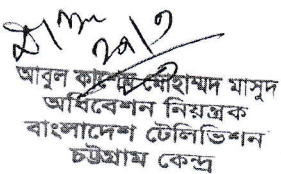 ২৯/৩
আবুল কাশেম মোহাম্মদ মাসুদ
অধিবেশন নিয়ন্ত্রক
বাংলাদেশ টেলিভিশন
চট্টগ্রাম কেন্দ্র